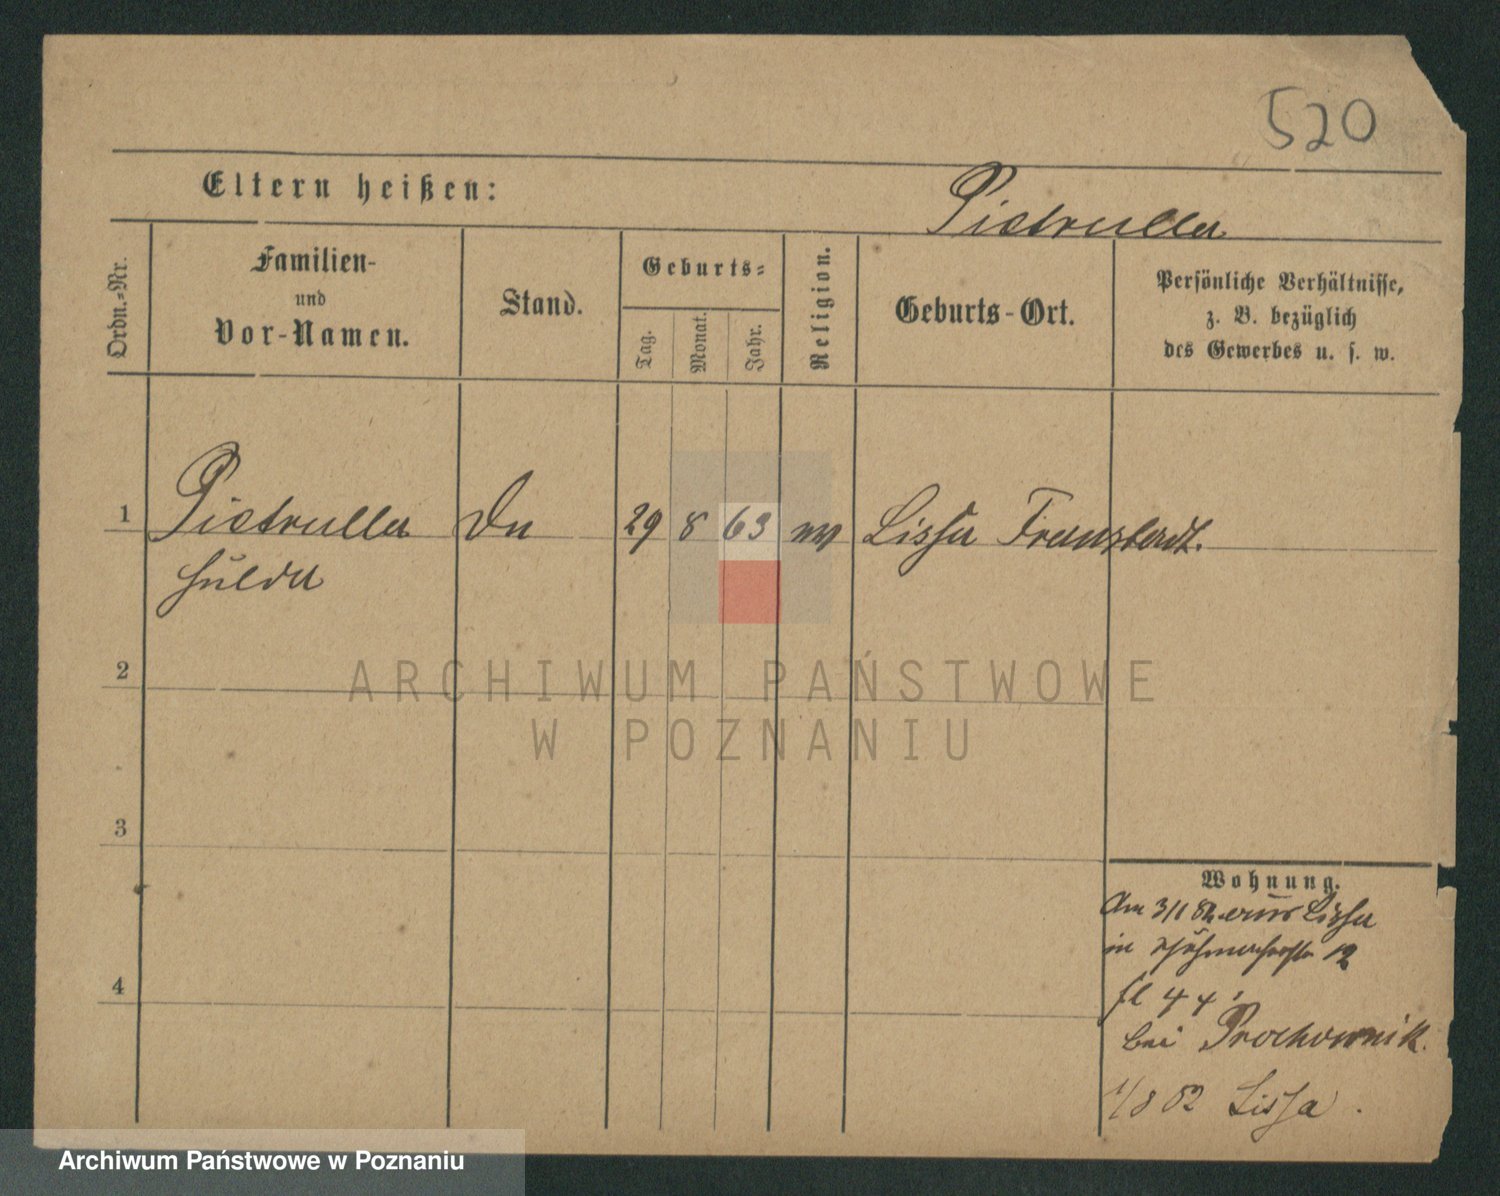 520
Eltern heißen:
Pietrulla
Ordn.-Nr.
Familien-
und
Vor-Namen.
Stand.
Geburts-
Tag.
Monat.
Jahr.
Religion.
Geburts-Ort.
Persönliche Verhältnisse,
z. B. bezüglich
des Gewerbes u. s. w.
1 Pietrulla 29 8 63 Lissa Fraustadt.
Hulda
2
ARCHIWUM PAŃSTWOWE
W POZNANIU
3
4
Wohnung.
Am 3/1 82 aus Lissa
in 12
bei Prochownik.
1/8 82 Lissa.
Archiwum Państwowe w Poznaniu